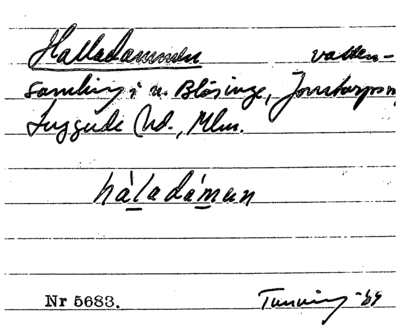 Halladammen vatten-
samling i n. Blåsinge, Jonstorps sn
Luggude hd., Mlm.
hàladámen
Nr 5683.
Tunning -69